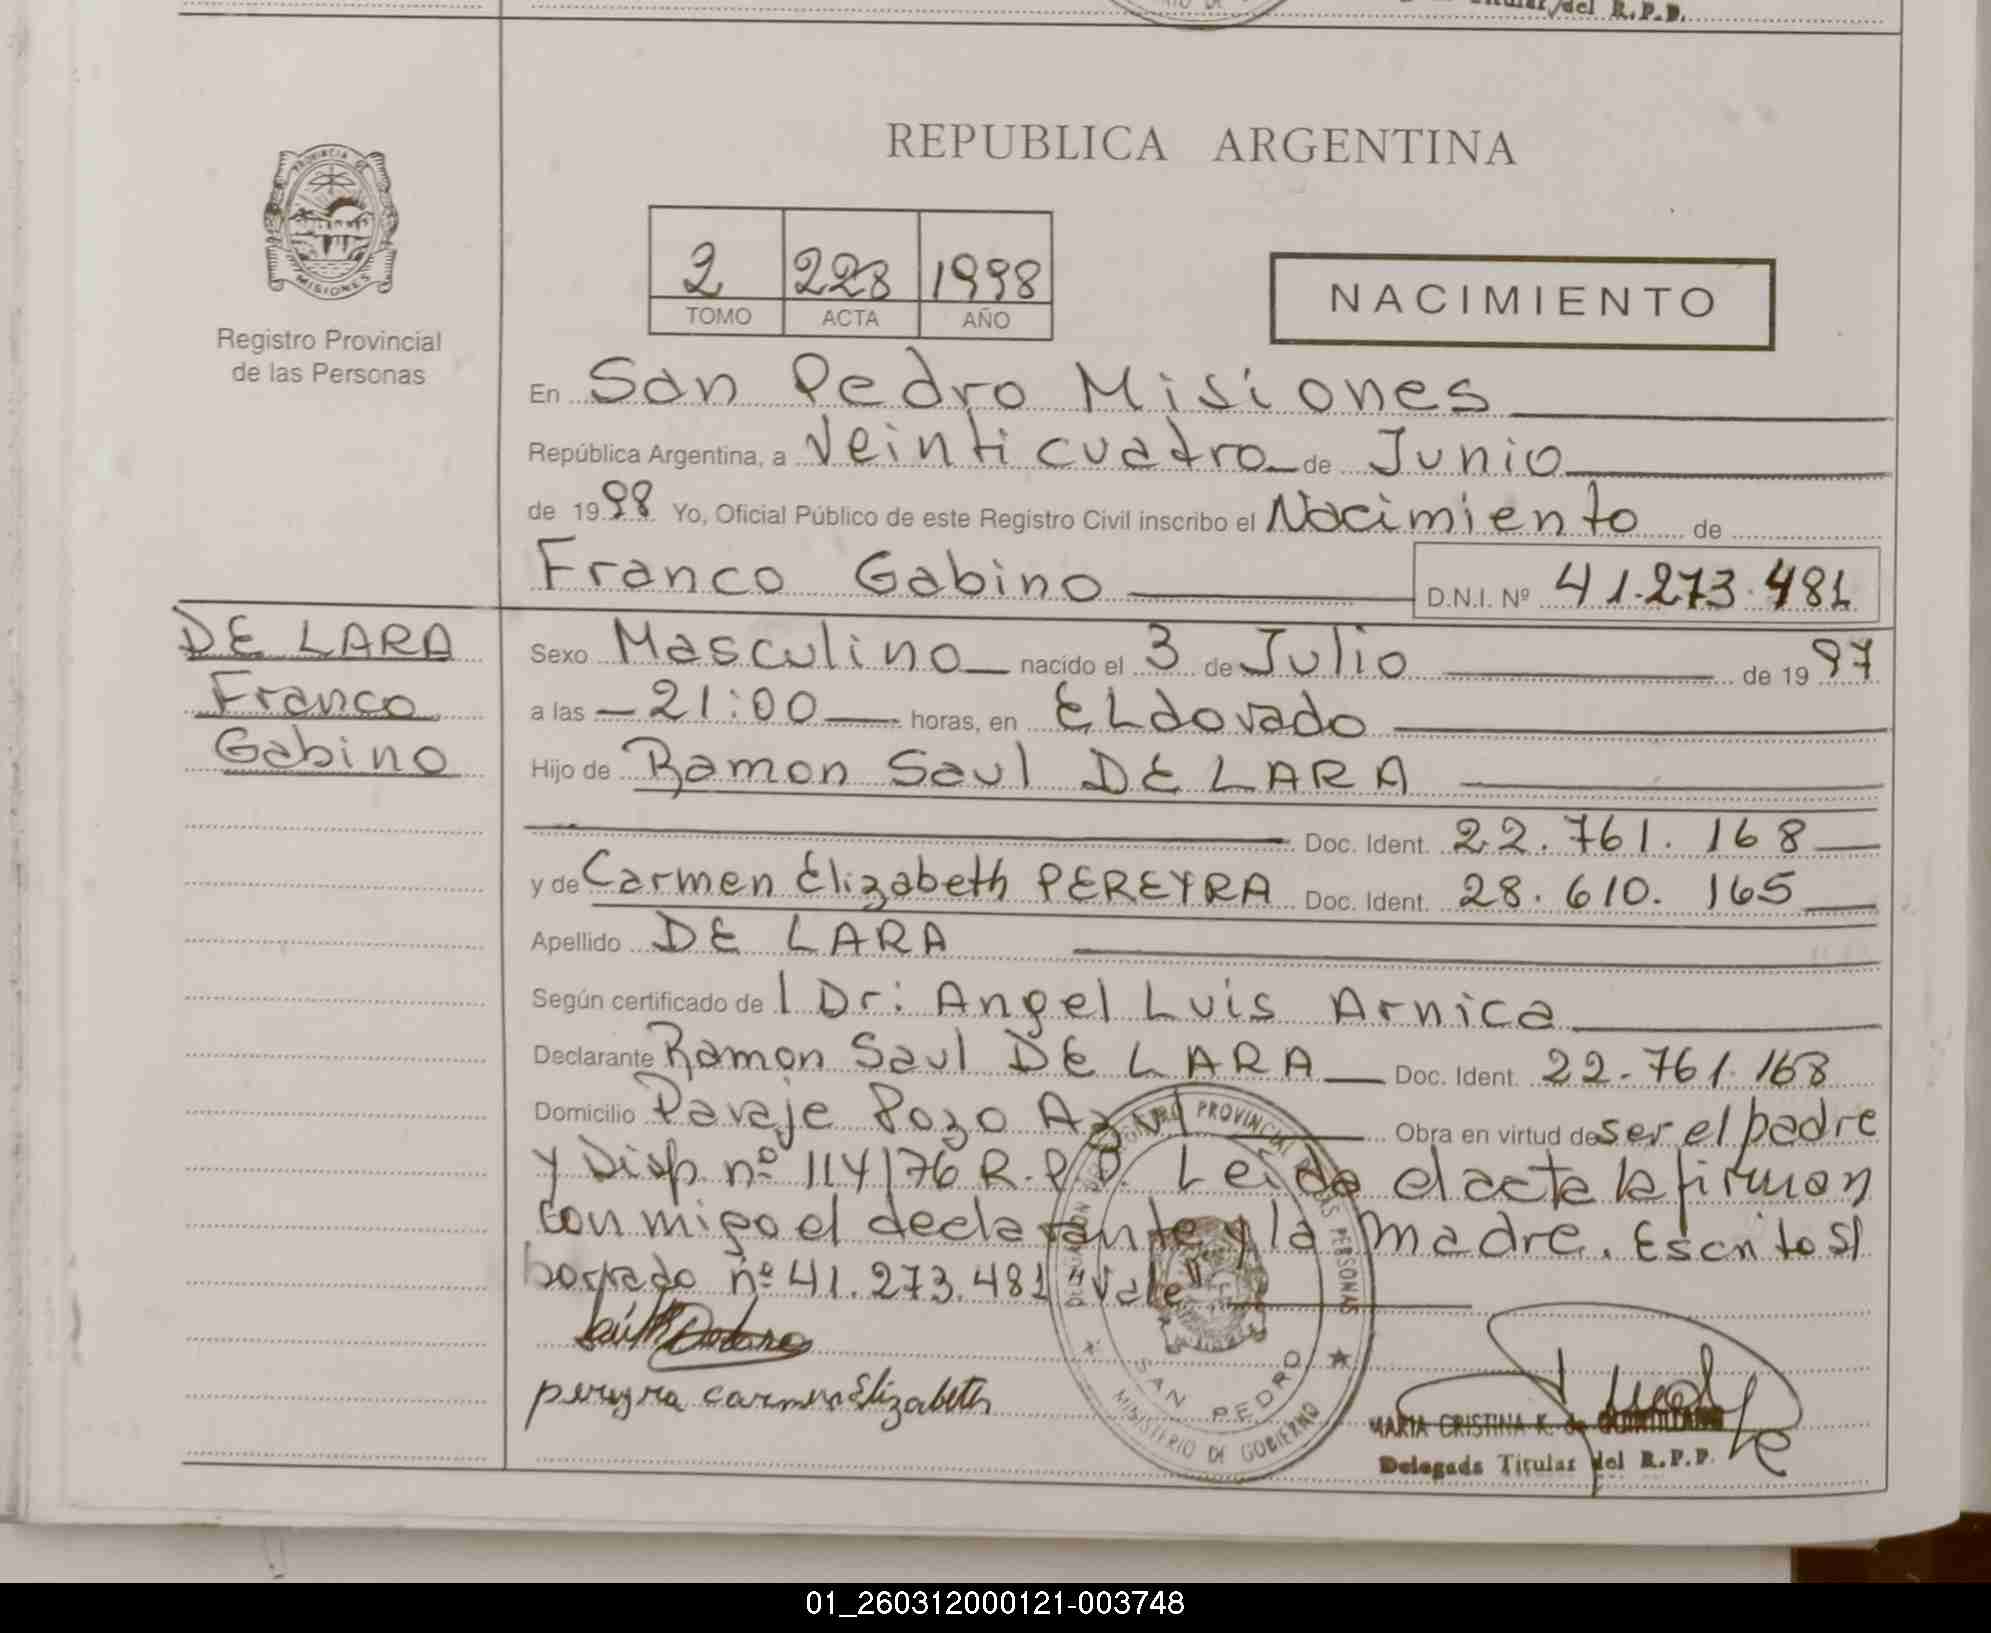 Titular del R.P.P.
REPUBLICA ARGENTINA
PROVINCIA DE
MISIONES
2 228 1998
TOMO ACTA AÑO
NACIMIENTO
Registro Provincial
de las Personas
En San Pedro Misiones
República Argentina, a Veinticuatro de Junio
de 1998 Yo, Oficial Público de este Registro Civil inscribo el Nacimiento de
Franco Gabino D.N.I. Nº 41.273.481
DE LARA
Franco
Gabino
Sexo Masculino nacido el 3 de Julio de 1997
a las 21:00 horas, en ELdorado
Hijo de Ramon Saul DE LARA
Doc. Ident. 22.761.168
y de Carmen Elizabeth PEREYRA Doc. Ident. 28.610.165
Apellido DE LARA
Según certificado de l Dr: Angel Luis Arnica
Declarante Ramon Saul DE LARA Doc. Ident. 22.761.168
Domicilio Paraje Pozo Azul Obra en virtud de ser el padre
y Disp. nº 114/76 R.P.P. Leida el acta la firman
conmigo el declarante y la madre. Escrito s/
borrado nº 41.273.481 "Vale"
pereyra carmen Elizabeth
REGISTRO PROVINCIAL DE LAS PERSONAS
SAN PEDRO
MINISTERIO DE GOBIERNO
MARIA CRISTINA K. de
Delegada Titular del R.P.P.
01_260312000121-003748